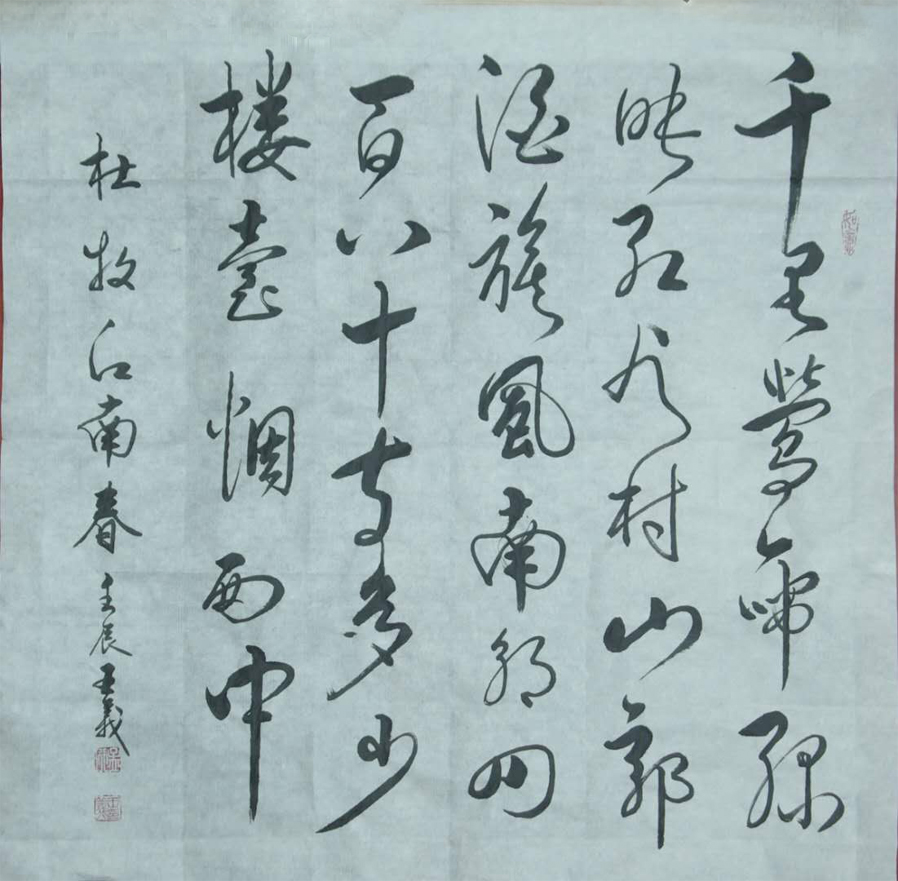 千里鶯啼綠
映紅水村山郭
酒旗風南朝四
百八十寺多少
楼臺烟雨中
杜牧江南春 壬辰 義